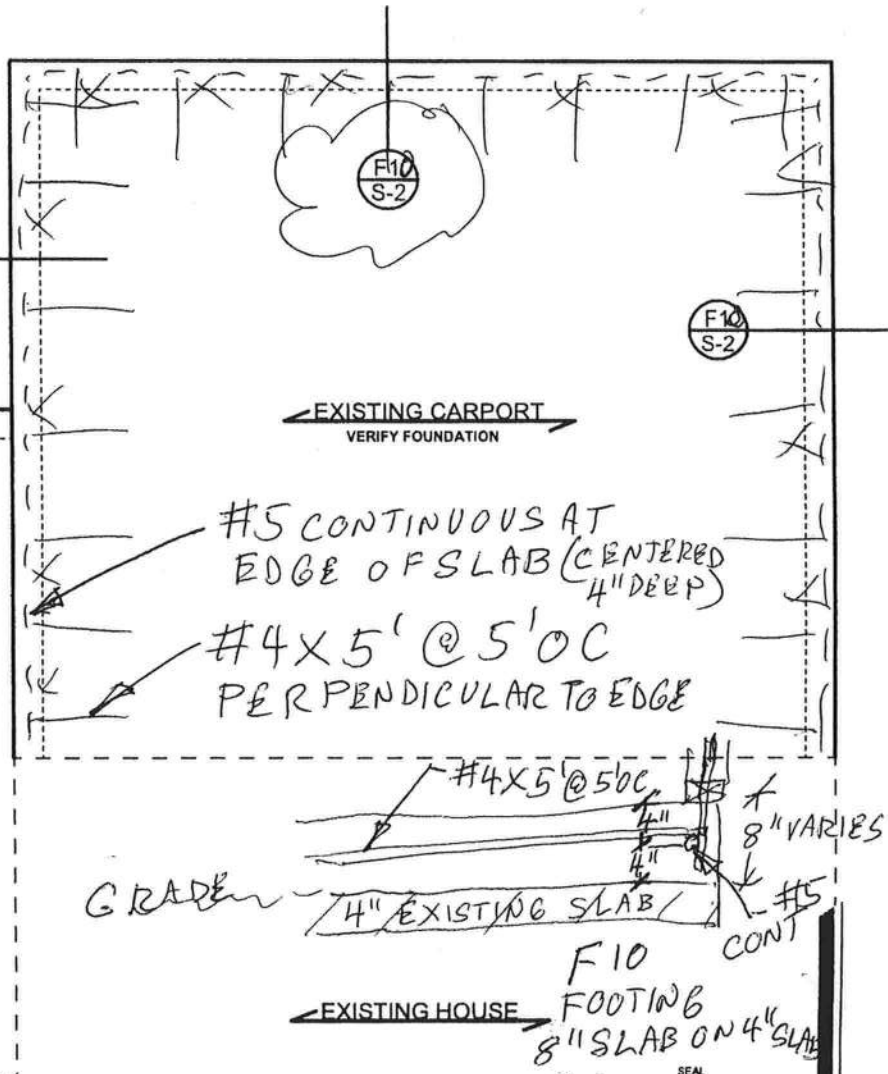 F10
S-2
F10
S-2
EXISTING CARPORT
VERIFY FOUNDATION
#5 CONTINUOUS AT
EDGE OF SLAB (CENTERED
4" DEEP)
#4 X 5' @ 5' OC
PERPENDICULAR TO EDGE
#4X5'@5'OC
4"
4"
8" VARIES
GRADE
4" EXISTING SLAB
#5
CONT
F10
FOOTING
8" SLAB ON 4" SLAB
EXISTING HOUSE
SEAL